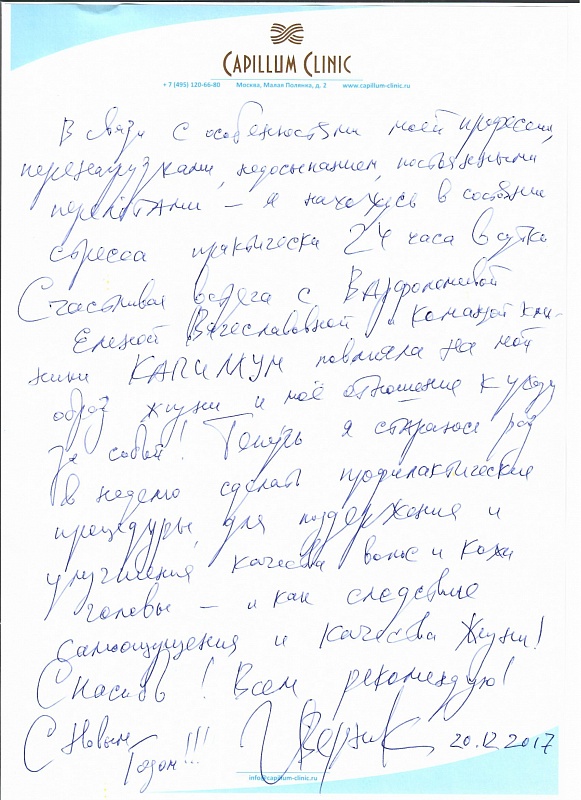 CAPILLUM CLINIC
+ 7 (495) 120-66-80 Москва, Малая Полянка, д. 2 www.capillum-clinic.ru
В связи с особенностями моей профессии,
перенагрузками, недосыпанием, постоянными
перелётами – я нахожусь в состоянии
стресса практически 24 часа в сутки
Счастливая встреча с Варфоломеевой
Еленой Вячеславовной и командой кли-
ники КАПИЛЛУМ повлияла на мой
образ жизни и моё отношение к уходу
за собой! Теперь я стараюсь раз
в неделю сделать профилактические
процедуры, для поддержания и
улучшения качества волос и кожи
головы – и как следствие
самоощущения и качества жизни!
Спасибо! Всем рекомендую!
С Новым
Годом!!! Верник 20.12.2017
info@capillum-clinic.ru